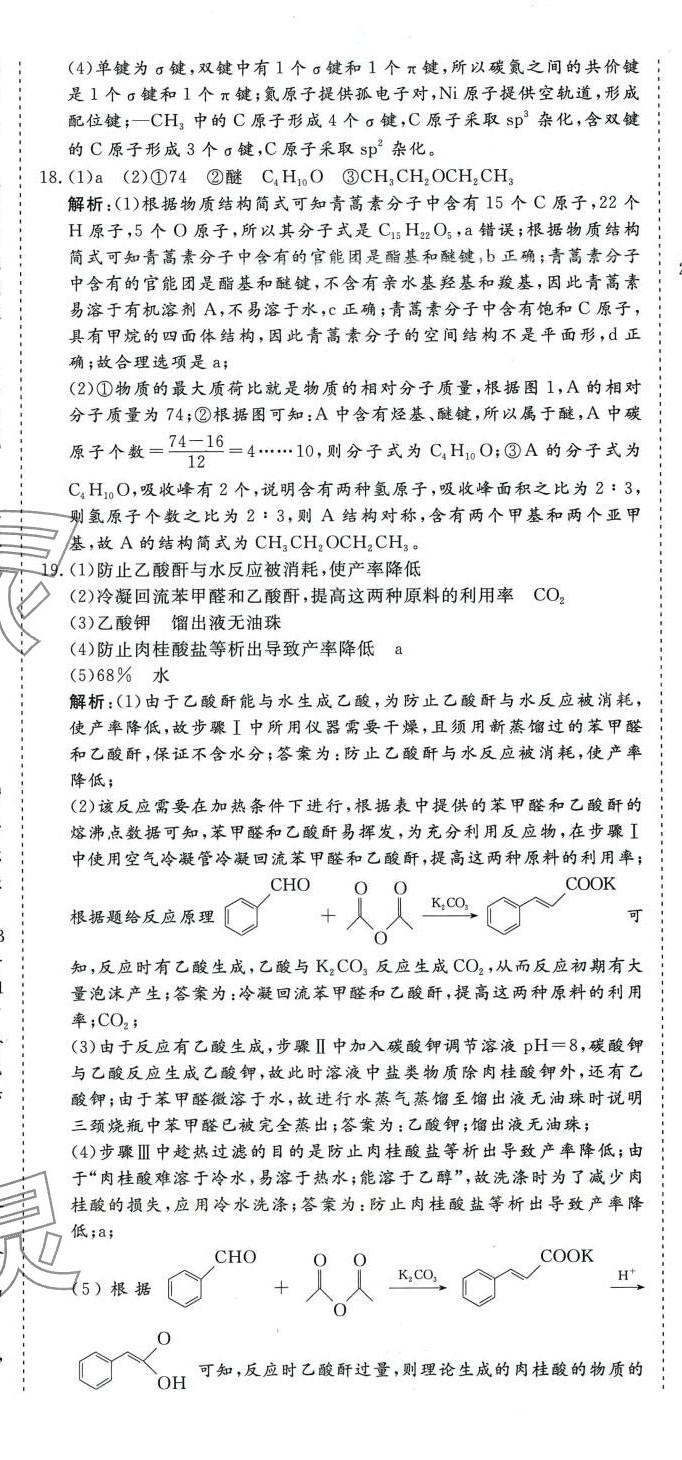 (4)单键为σ键,双键中有1个σ键和1个π键,所以碳氮之间的共价键
是1个σ键和1个π键;氮原子提供孤电子对,Ni原子提供空轨道,形成
配位键;—CH₃中的C原子形成4个σ键,C原子采取sp³杂化,含双键
的C原子形成3个σ键,C原子采取sp²杂化。
18.(1)a (2)①74 ②醚 C₄H₁₀O ③CH₃CH₂OCH₂CH₃
解析:(1)根据物质结构简式可知青蒿素分子中含有15个C原子,22个
H原子,5个O原子,所以其分子式是C₁₅H₂₂O₅,a错误;根据物质结构
简式可知青蒿素分子中含有的官能团是酯基和醚键,b正确;青蒿素分子
中含有的官能团是酯基和醚键,不含有亲水基羟基和羧基,因此青蒿素
易溶于有机溶剂A,不易溶于水,c正确;青蒿素分子中含有饱和C原子,
具有甲烷的四面体结构,因此青蒿素分子的空间结构不是平面形,d正
确;故合理选项是a;
(2)①物质的最大质荷比就是物质的相对分子质量,根据图1,A的相对
分子质量为74;②根据图可知:A中含有烃基、醚键,所以属于醚,A中碳
原子个数=(74-16)/12=4……10,则分子式为C₄H₁₀O;③A的分子式为
C₄H₁₀O,吸收峰有2个,说明含有两种氢原子,吸收峰面积之比为2∶3,
则氢原子个数之比为2∶3,则A结构对称,含有两个甲基和两个亚甲
基,故A的结构简式为CH₃CH₂OCH₂CH₃。
19.(1)防止乙酸酐与水反应被消耗,使产率降低
(2)冷凝回流苯甲醛和乙酸酐,提高这两种原料的利用率 CO₂
(3)乙酸钾 馏出液无油珠
(4)防止肉桂酸盐等析出导致产率降低 a
(5)68% 水
解析:(1)由于乙酸酐能与水生成乙酸,为防止乙酸酐与水反应被消耗,
使产率降低,故步骤Ⅰ中所用仪器需要干燥,且须用新蒸馏过的苯甲醛
和乙酸酐,保证不含水分;答案为:防止乙酸酐与水反应被消耗,使产率
降低;
(2)该反应需要在加热条件下进行,根据表中提供的苯甲醛和乙酸酐的
熔沸点数据可知,苯甲醛和乙酸酐易挥发,为充分利用反应物,在步骤Ⅰ
中使用空气冷凝管冷凝回流苯甲醛和乙酸酐,提高这两种原料的利用率;
根据题给反应原理 CHO + O O O K₂CO₃ COOK 可
知,反应时有乙酸生成,乙酸与K₂CO₃反应生成CO₂,从而反应初期有大
量泡沫产生;答案为:冷凝回流苯甲醛和乙酸酐,提高这两种原料的利用
率;CO₂;
(3)由于反应有乙酸生成,步骤Ⅱ中加入碳酸钾调节溶液pH=8,碳酸钾
与乙酸反应生成乙酸钾,故此时溶液中盐类物质除肉桂酸钾外,还有乙
酸钾;由于苯甲醛微溶于水,故进行水蒸气蒸馏至馏出液无油珠时说明
三颈烧瓶中苯甲醛已被完全蒸出;答案为:乙酸钾;馏出液无油珠;
(4)步骤Ⅲ中趁热过滤的目的是防止肉桂酸盐等析出导致产率降低;由
于“肉桂酸难溶于冷水,易溶于热水;能溶于乙醇”,故洗涤时为了减少肉
桂酸的损失,应用冷水洗涤;答案为:防止肉桂酸盐等析出导致产率降
低;a;
(5)根据 CHO + O O O K₂CO₃ COOK H⁺
O OH 可知,反应时乙酸酐过量,则理论生成的肉桂酸的物质的